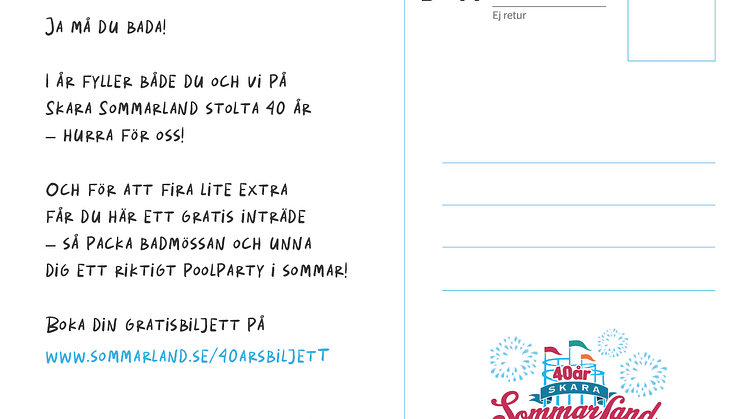 Ja må du bada!
I år fyller både du och vi på
Skara Sommarland stolta 40 år
– hurra för oss!
Och för att fira lite extra
får du här ett gratis inträde
– så packa badmössan och unna
dig ett riktigt poolparty i sommar!
Boka din gratisbiljett på
www.sommarland.se/40arsbiljett
Ej retur
40år
SKARA
Sommarland